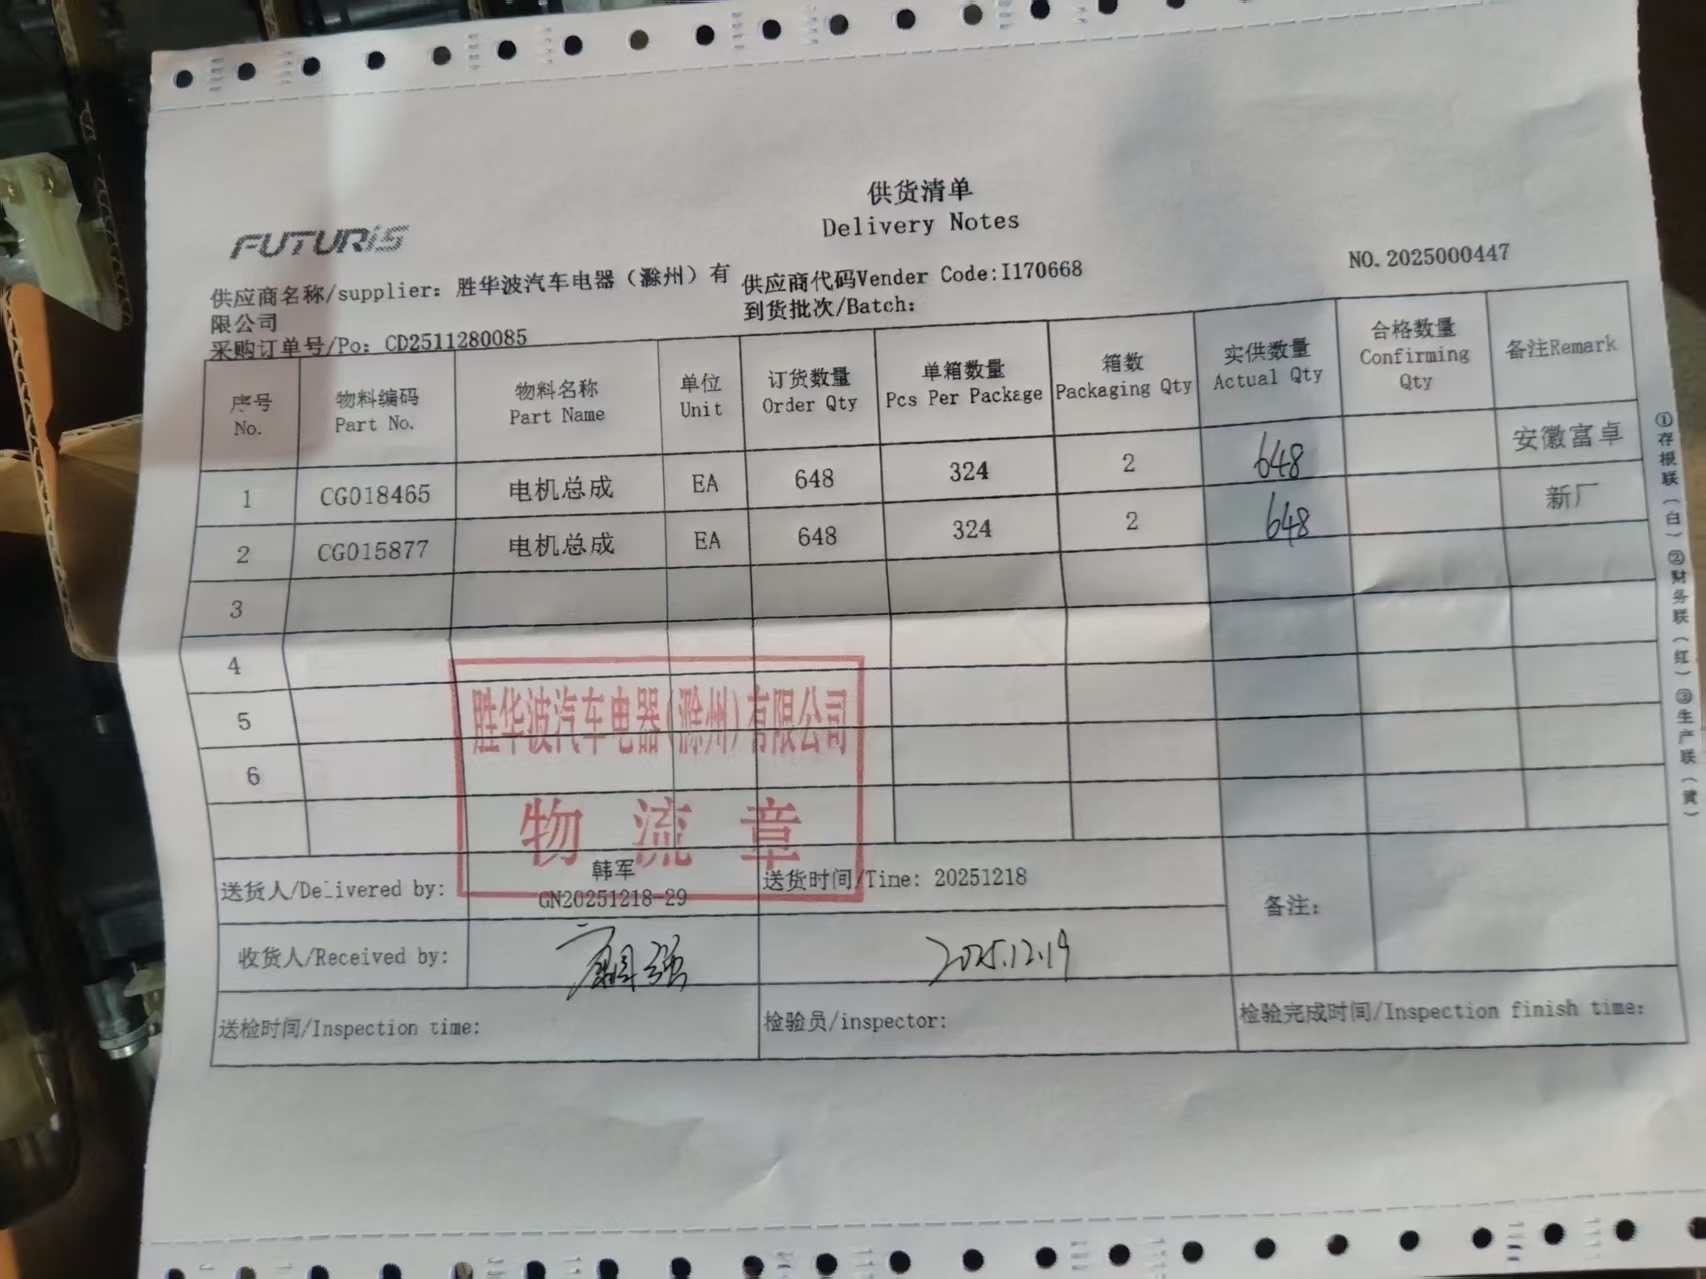 供货清单
Delivery Notes
FUTURIS
NO.2025000447
供应商名称/supplier: 胜华波汽车电器（滁州）有
限公司
供应商代码Vender Code:I170668
到货批次/Batch:
采购订单号/Po: CD2511280085
序号 No. 物料编码 Part No. 物料名称 Part Name 单位 Unit 订货数量 Order Qty 单箱数量 Pcs Per Package 箱数 Packaging Qty 实供数量 Actual Qty 合格数量 Confirming Qty 备注Remark
1 CG018465 电机总成 EA 648 324 2 648 安徽富卓
2 CG015877 电机总成 EA 648 324 2 648 新厂
3
4
5
6
胜华波汽车电器(滁州)有限公司
物流章
送货人/Delivered by: 韩军 GN20251218-29 送货时间/Time: 20251218 备注:
收货人/Received by: 2025.12.19
送检时间/Inspection time: 检验员/inspector: 检验完成时间/Inspection finish time:
①存根联（白）②财务联（红）③生产联（黄）